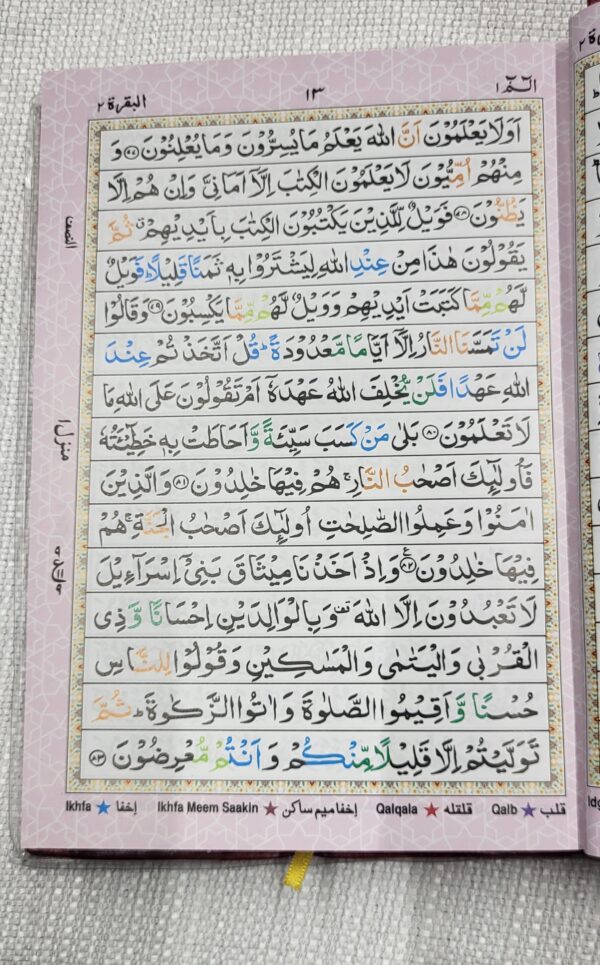 البقرة ٢ ١٣ الٓمّٓ ١
اَوَلَا يَعْلَمُوْنَ اَنَّ اللّٰهَ يَعْلَمُ مَا يُسِرُّوْنَ وَمَا يُعْلِنُوْنَ ﴿٧٧﴾ وَ
مِنْهُمْ اُمِّيُّوْنَ لَا يَعْلَمُوْنَ الْكِتٰبَ اِلَّاۤ اَمَانِيَّ وَاِنْ هُمْ اِلَّا
يَظُنُّوْنَ ﴿٧٨﴾ فَوَيْلٌ لِّلَّذِيْنَ يَكْتُبُوْنَ الْكِتٰبَ بِاَيْدِيْهِمْ ۗ ثُمَّ
يَقُوْلُوْنَ هٰذَا مِنْ عِنْدِ اللّٰهِ لِيَشْتَرُوْا بِهٖ ثَمَنًا قَلِيْلًا ؕ فَوَيْلٌ
لَّهُمْ مِّمَّا كَتَبَتْ اَيْدِيْهِمْ وَوَيْلٌ لَّهُمْ مِّمَّا يَكْسِبُوْنَ ﴿٧٩﴾ وَقَالُوْا
لَنْ تَمَسَّنَا النَّارُ اِلَّاۤ اَيَّامًا مَّعْدُوْدَةً ؕ قُلْ اَتَّخَذْتُمْ عِنْدَ
اللّٰهِ عَهْدًا فَلَنْ يُّخْلِفَ اللّٰهُ عَهْدَهٗۤ اَمْ تَقُوْلُوْنَ عَلَى اللّٰهِ مَا
لَا تَعْلَمُوْنَ ﴿٨٠﴾ بَلٰى مَنْ كَسَبَ سَيِّئَةً وَّاَحَاطَتْ بِهٖ خَطِيْٓئَتُهٗ
فَاُولٰٓئِكَ اَصْحٰبُ النَّارِ ۚ هُمْ فِيْهَا خٰلِدُوْنَ ﴿٨١﴾ وَالَّذِيْنَ
اٰمَنُوْا وَعَمِلُوا الصّٰلِحٰتِ اُولٰٓئِكَ اَصْحٰبُ الْجَنَّةِ ۚ هُمْ
فِيْهَا خٰلِدُوْنَ ﴿٨٢﴾ وَاِذْ اَخَذْنَا مِيْثَاقَ بَنِيْۤ اِسْرَآءِيْلَ
لَا تَعْبُدُوْنَ اِلَّا اللّٰهَ ۗ وَبِالْوَالِدَيْنِ اِحْسَانًا وَّذِي
الْقُرْبٰى وَالْيَتٰمٰى وَالْمَسٰكِيْنِ وَقُوْلُوْا لِلنَّاسِ
حُسْنًا وَّاَقِيْمُوا الصَّلٰوةَ وَاٰتُوا الزَّكٰوةَ ؕ ثُمَّ
تَوَلَّيْتُمْ اِلَّا قَلِيْلًا مِّنْكُمْ وَاَنْتُمْ مُّعْرِضُوْنَ ﴿٨٣﴾
النصف
منزل ١
Ikhfa ★ اخفا Ikhfa Meem Saakin ★ اخفا میم ساکن Qalqala ★ قلقله Qalb ★ قلب